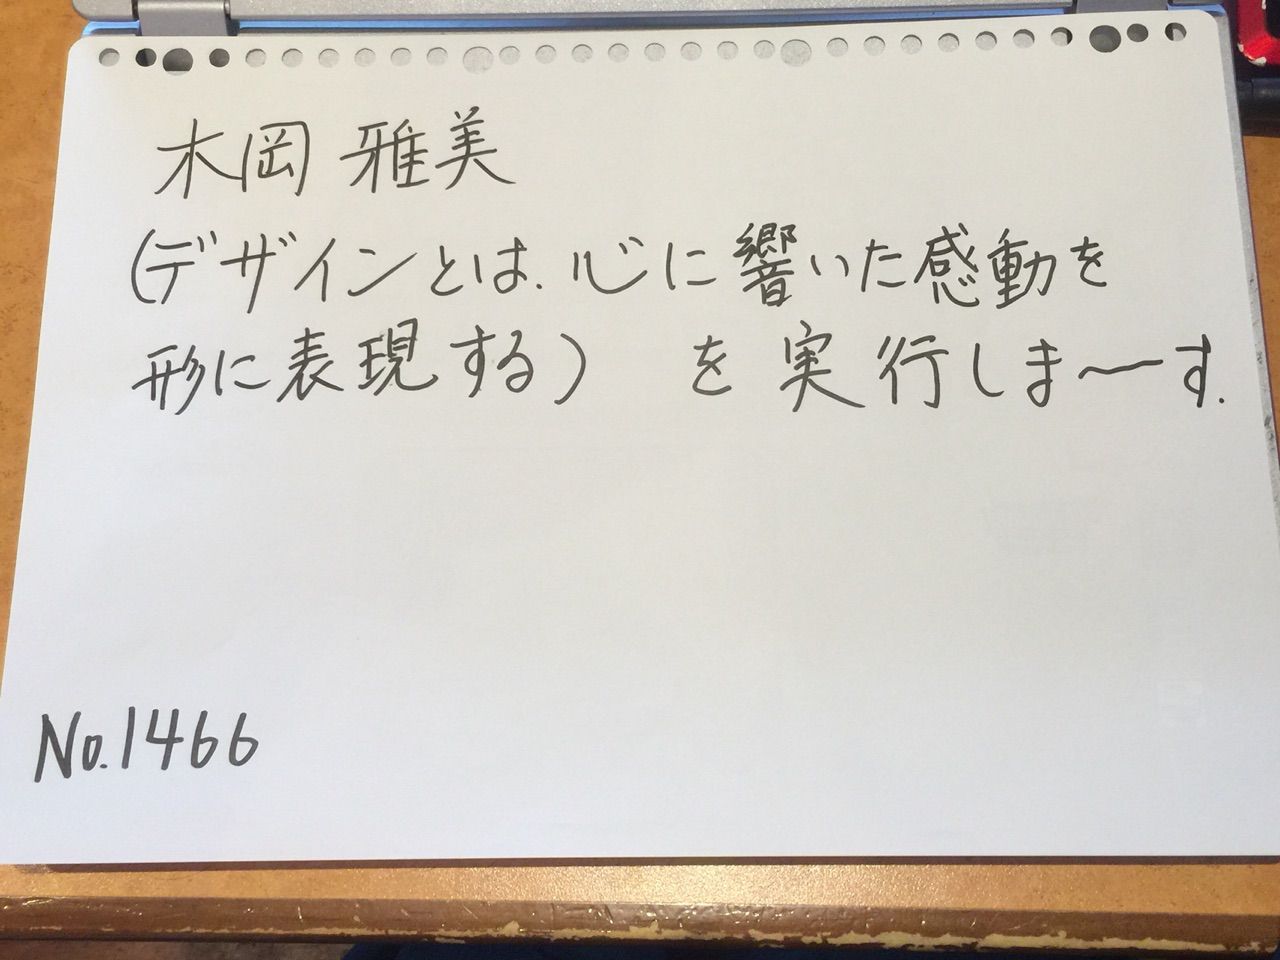 木岡 雅美
(デザインとは、心に響いた感動を
形に表現する) を実行しま〜す.
No.1466